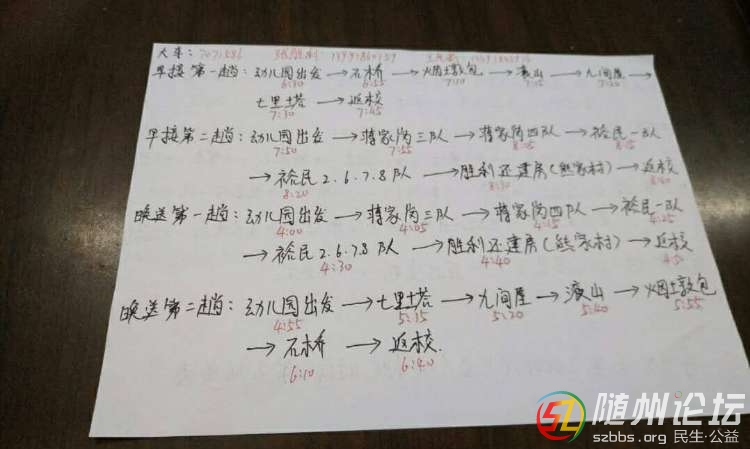 大车:
早接第一趟:幼儿园出发→石桥→烟墩包→液山→九间屋→
6:30 6:55 7:10 7:15 7:20
七里土塔→返校
7:30 7:45
早接第二趟:幼儿园出发→蒋家岗三队→蒋家岗四队→裕民一队
7:50 7:55 8:05 8:15
→裕民2.6.7.8队→胜利还建房(熊家村)→返校
8:20 8:30 8:40
晚送第一趟:幼儿园出发→蒋家岗三队→蒋家岗四队→裕民一队
4:00 4:05 4:15 4:25
→裕民2.6.7.8队→胜利还建房(熊家村)→返校
4:30 4:40
晚送第二趟:幼儿园出发→七里土塔→九间屋→液山→烟墩包
4:55 5:15 5:20 5:40 5:55
→石桥→返校.
6:10 6:40
随州论坛
szbbs.org 民生·公益